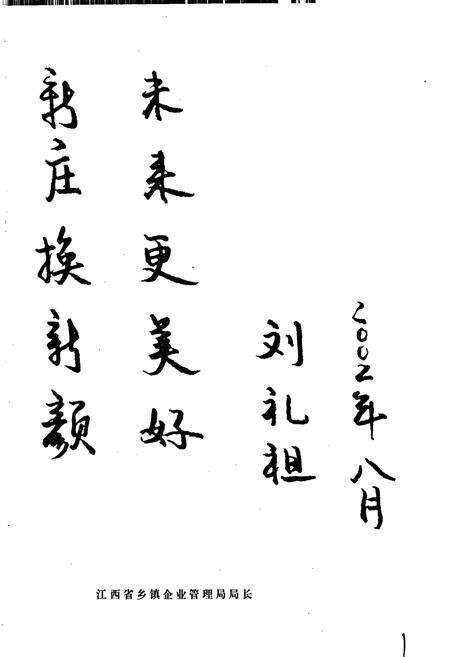 新庄换新颜
未来更美好
刘礼祖
二〇〇二年八月
江西省乡镇企业管理局局长